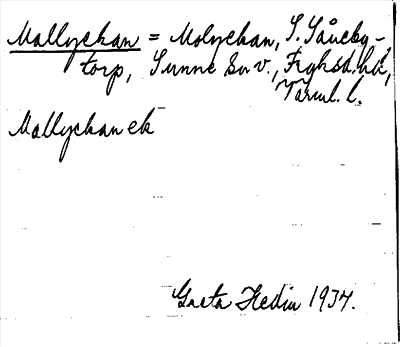 Mallyckan = Molyckan, S. Såneby-
torp, Sunne sn v., Fryksd. hd,
Värml. l.
Mallyckan ek
Greta Hedin 1937.